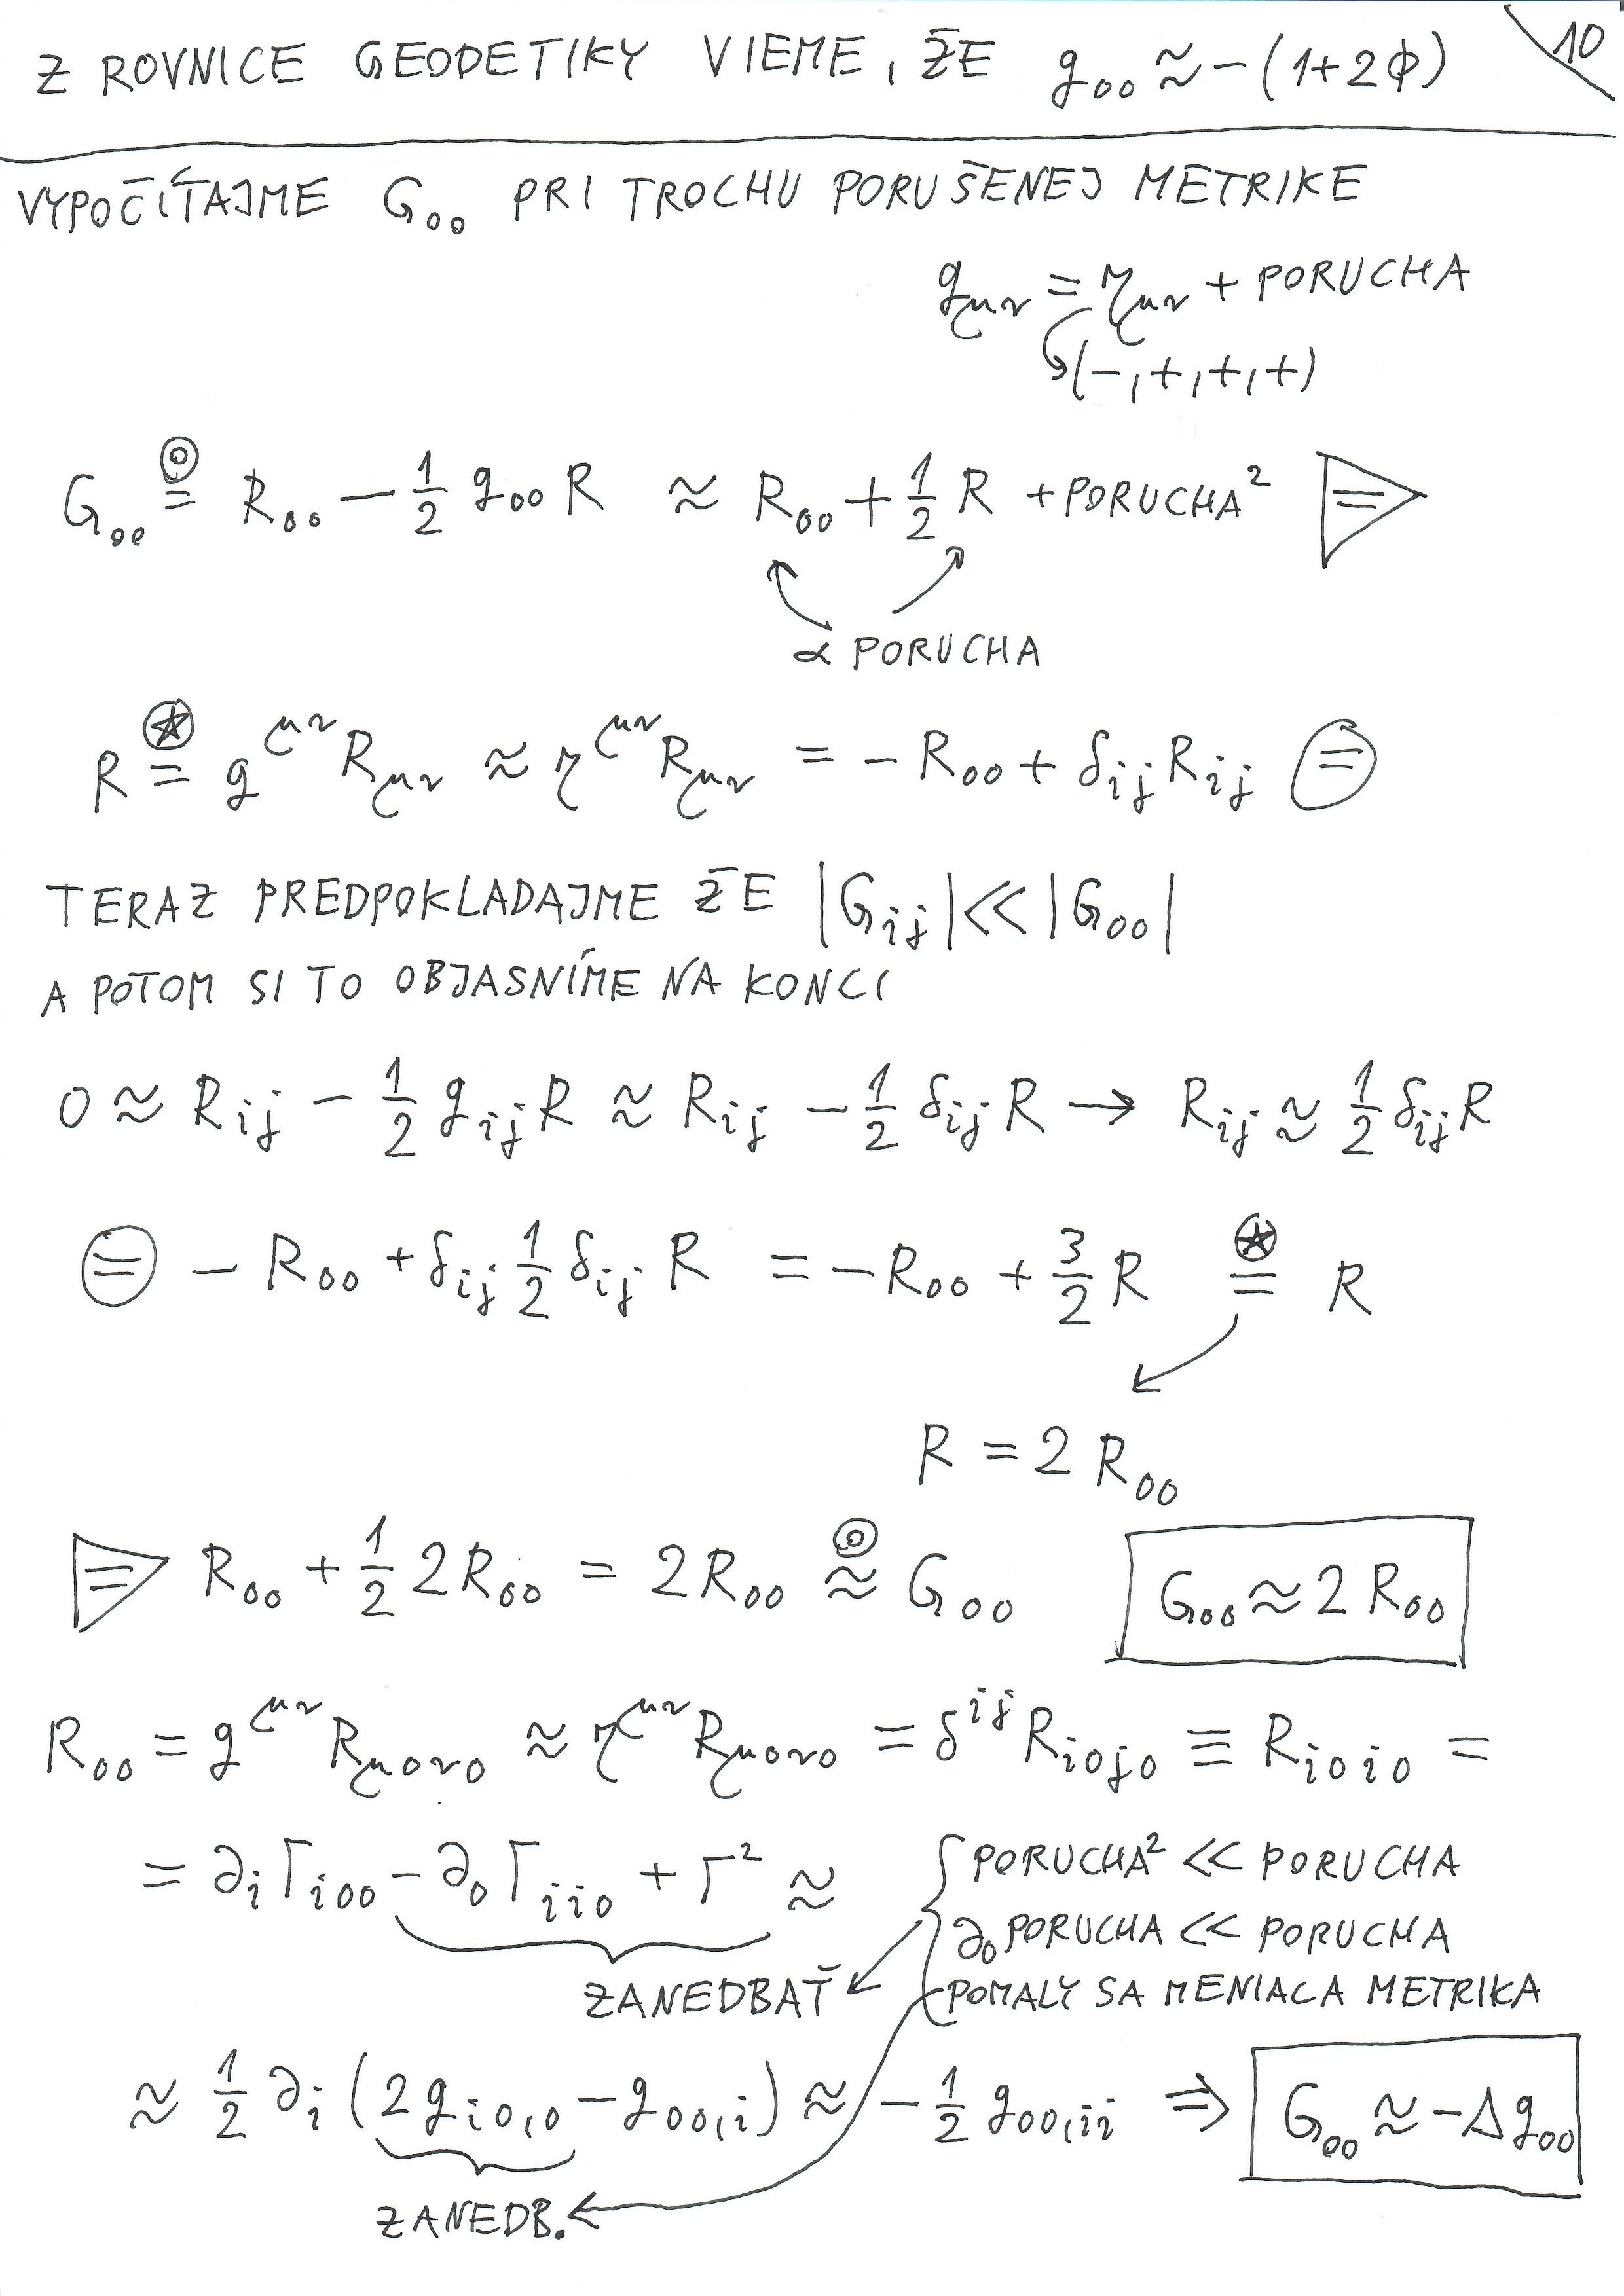 Z ROVNICE GEODETIKY VIEME, ŽE g₀₀ ≈ −(1+2ϕ)
10
VYPOČÍTAJME G₀₀ PRI TROCHU PORUŠENEJ METRIKE
g_μν = η_μν + PORUCHA
(−,+,+,+)
G₀₀ = R₀₀ − 1/2 g₀₀ R ≈ R₀₀ + 1/2 R + PORUCHA²  =
∝ PORUCHA
R = g^μν R_μν ≈ η^μν R_μν = − R₀₀ + δ_ij R_ij  =
TERAZ PREDPOKLADAJME ŽE |G_ij| << |G₀₀|
A POTOM SI TO OBJASNÍME NA KONCI
0 ≈ R_ij − 1/2 g_ij R ≈ R_ij − 1/2 δ_ij R → R_ij ≈ 1/2 δ_ij R
= − R₀₀ + δ_ij 1/2 δ_ij R = − R₀₀ + 3/2 R = R
R = 2 R₀₀
= R₀₀ + 1/2 2R₀₀ = 2R₀₀ ≈ G₀₀
G₀₀ ≈ 2 R₀₀
R₀₀ = g^μν R_μ0ν0 ≈ η^μν R_μ0ν0 = δ^ij R_i0j0 ≡ R_i0i0 =
= ∂_i Γ_i00 − ∂₀ Γ_ii0 + Γ² ≈
PORUCHA² << PORUCHA
∂₀ PORUCHA << PORUCHA
ZANEDBAŤ
POMALY SA MENIACA METRIKA
≈ 1/2 ∂_i (2g_i0,0 − g_00,i) ≈ − 1/2 g_00,ii ⇒ G₀₀ ≈ −Δg₀₀
ZANEDB.